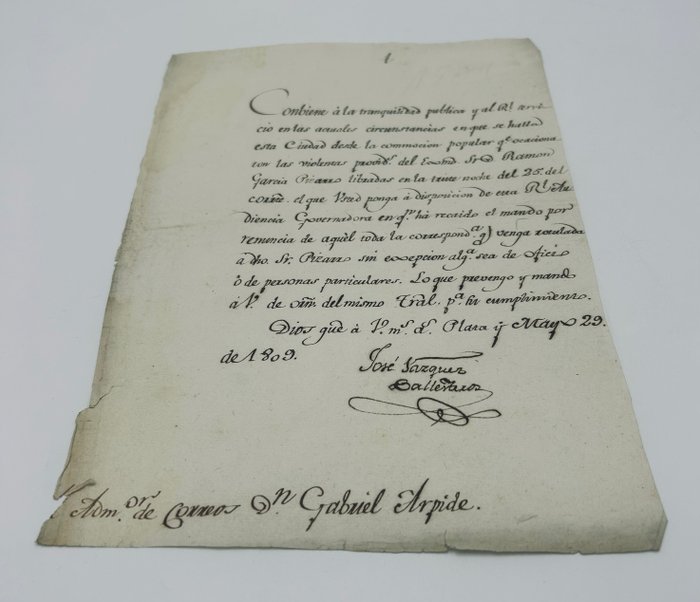 1
Conbiene à la tranquilidad publica y al Rl. servi
cio en las actuales circunstancias en que se halla
esta Ciudad desde la commocion popular qe. ocaciona
ron las violentas provids. del Exmo. Sr. Dn. Ramon
Garcia Pizarro libradas en la triste noche del 25. del
corrte. el que Vsted ponga à disposicion de esta Rl. Au
diencia Governadora en qn. ha recaido el mando por
renuncia de aquèl toda la correspondª. q. venga rotulada
a dho. Sr. Pizarro sin excepcion algª. sea de oficio
ò de personas particulares. Lo que prevengo y mando
à V. de orn. del mismo Tral. pª. su cumplimiento.
Dios gue à V. ms. as. Plata y Mayo 29.
de 1809.
José Vazquez
Ballesteros
Admor. de Correos Dn. Gabriel Arpide.